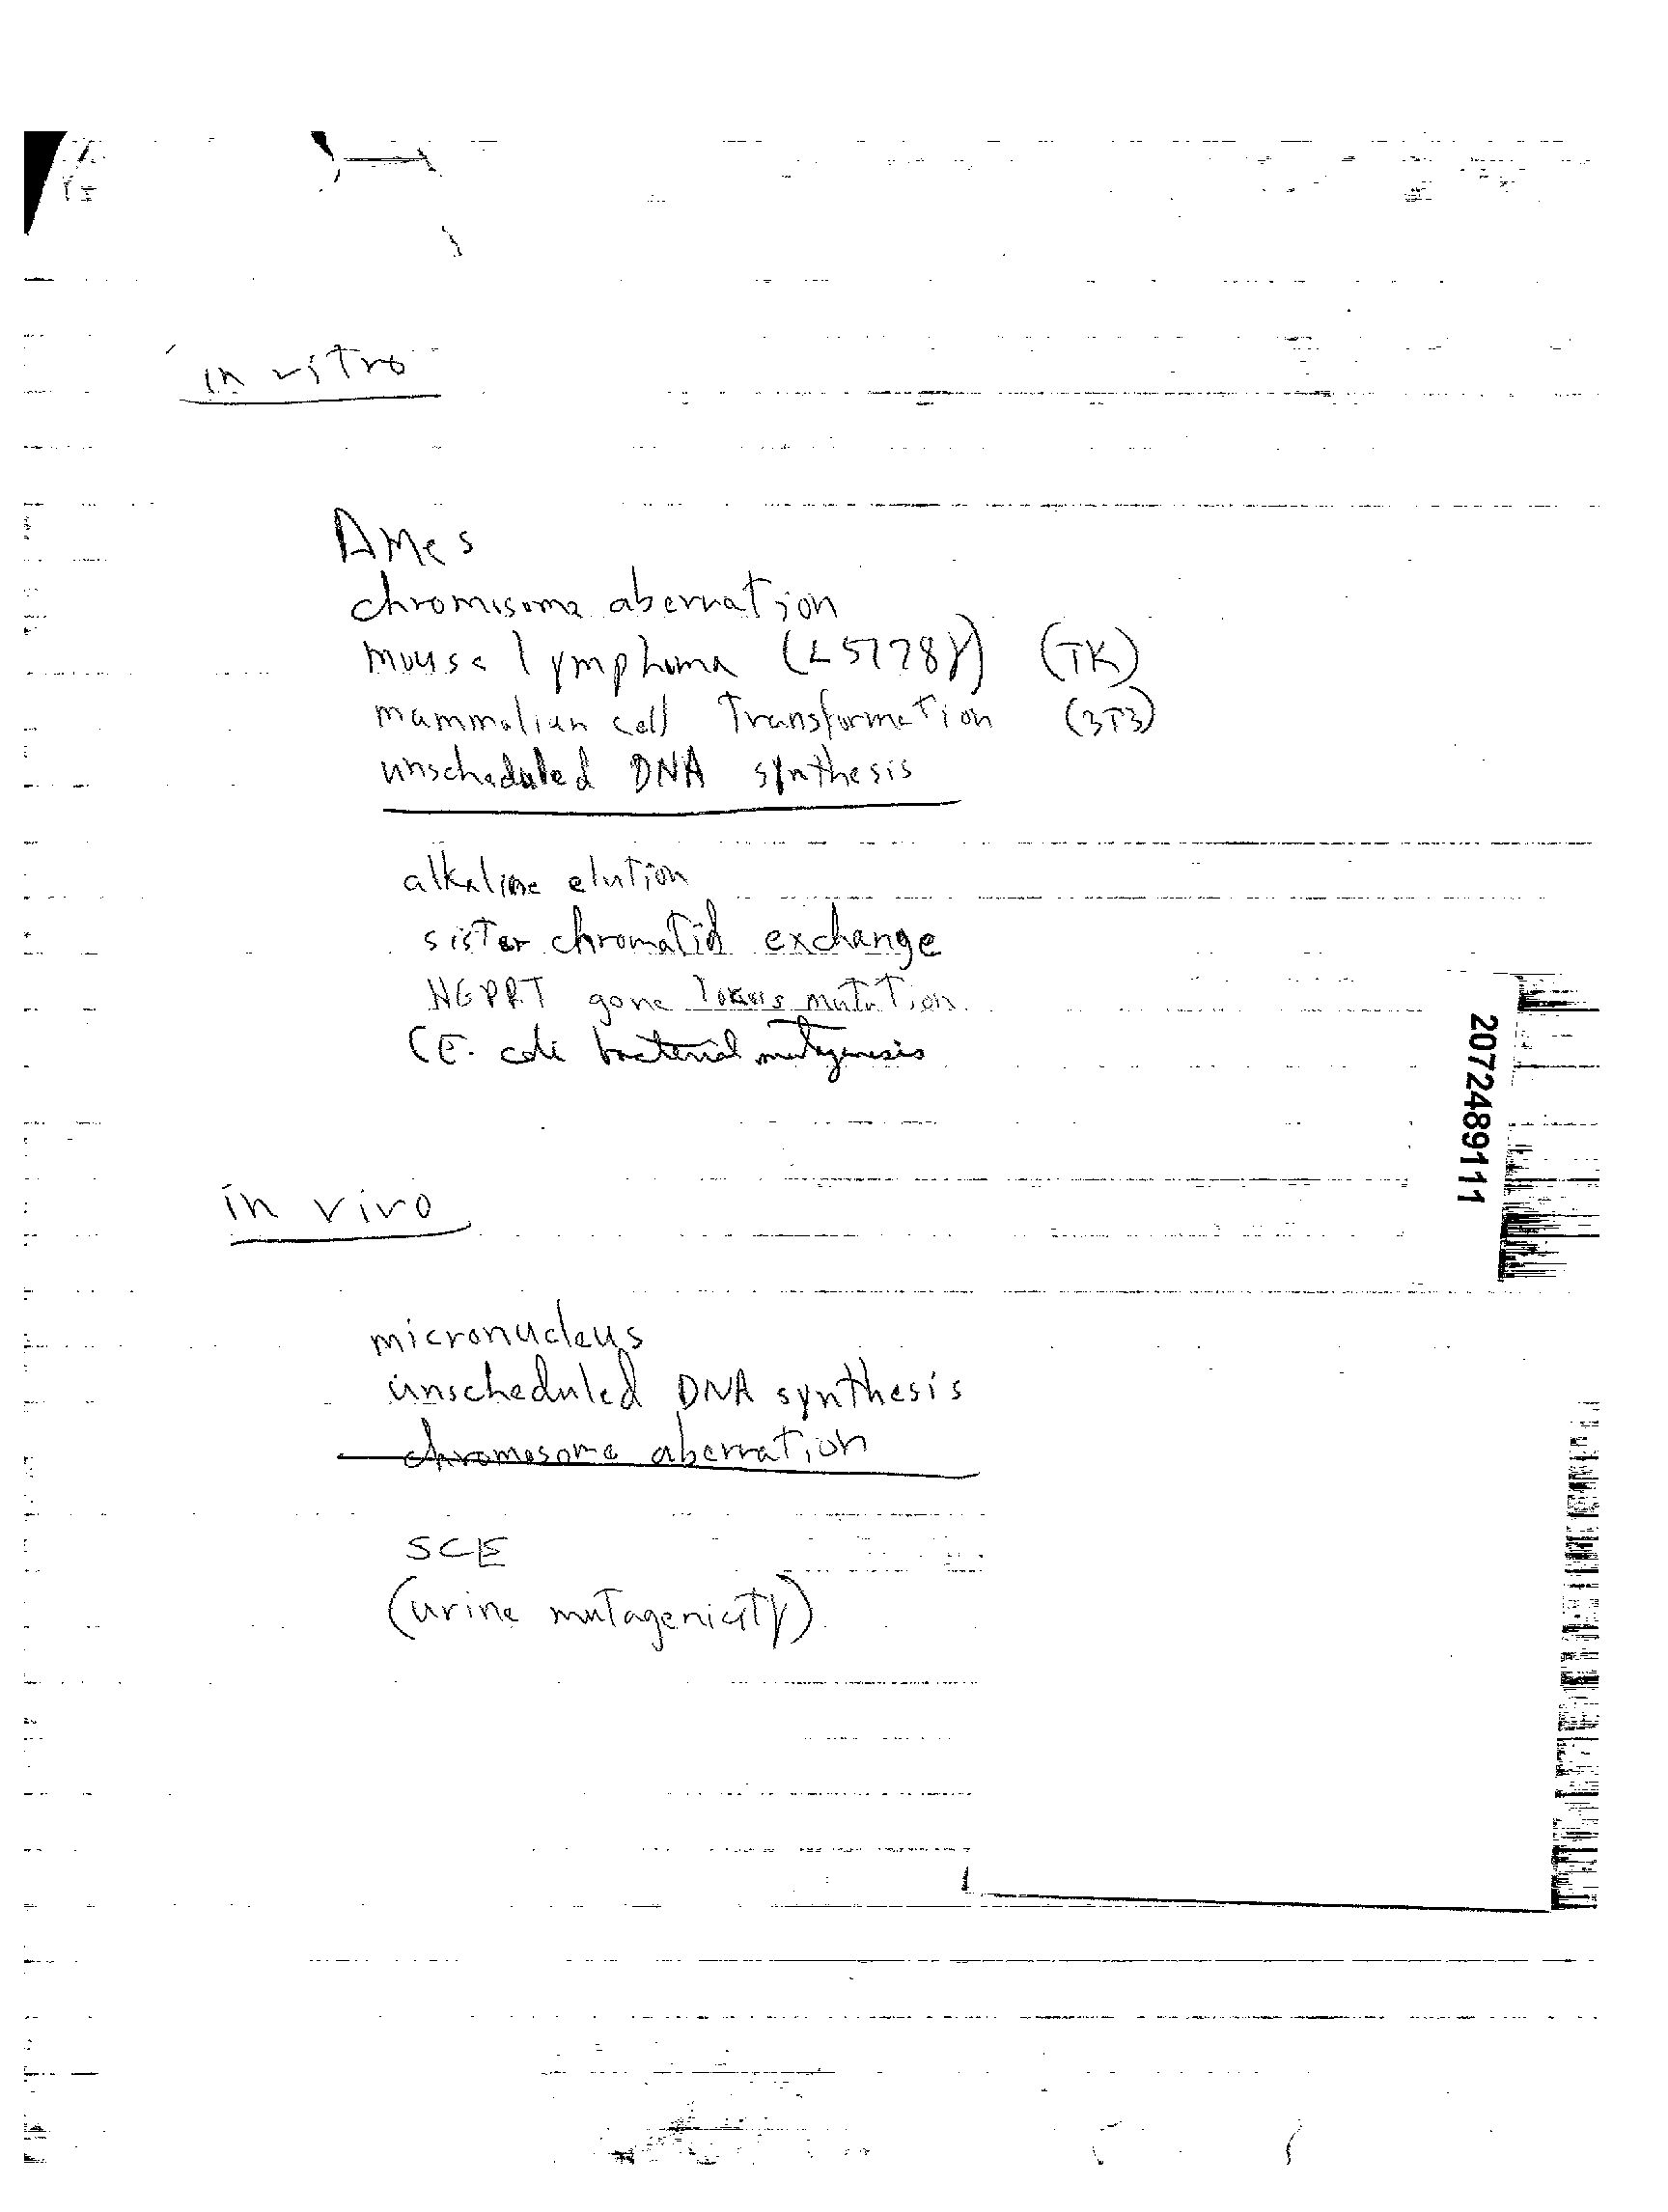 in vitro
AMes
chromisome aberration
mouse lymphoma (L5178Y) (TK)
mammalian cell Transformation (3T3)
unscheduled DNA synthesis
alkaline elution
sister chromatid exchange
HGPRT gene locus mutation
(E. coli bacterial mutagenesis
2072489111
in vivo
micronucleus
unscheduled DNA synthesis
chromosome aberration
SCE
(urine mutagenicity)